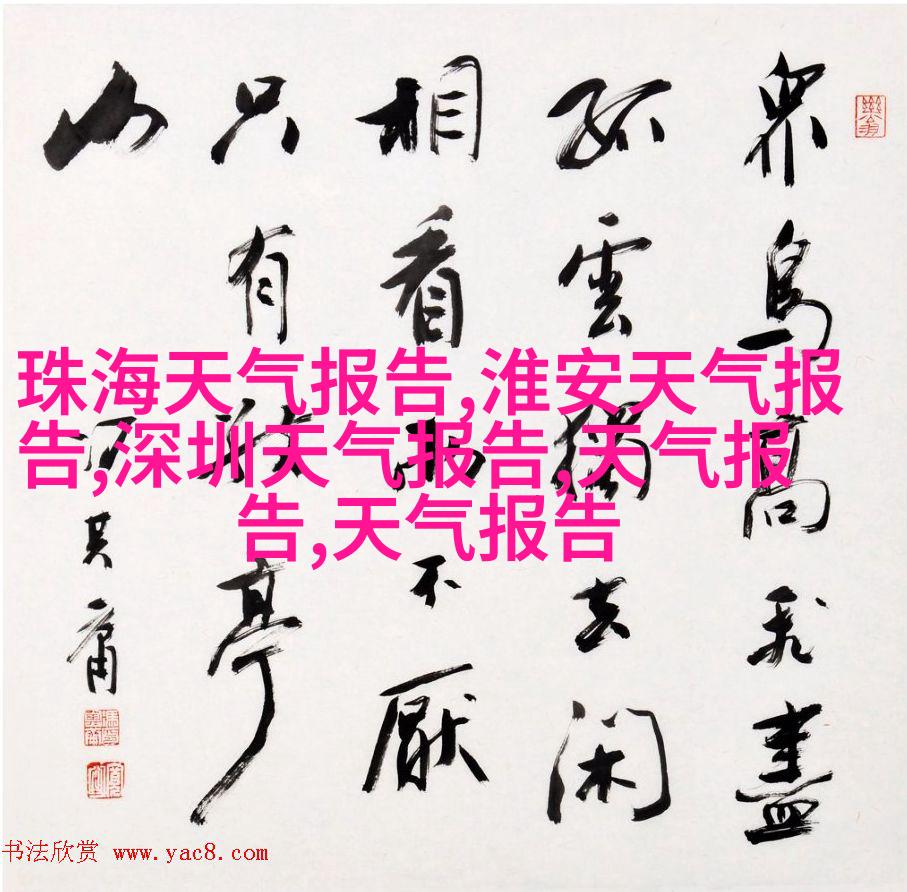 眾鳥高飛盡
孤雲獨去閑
相看兩不厭
只有敬亭
山
其庸
珠海天气报告,淮安天气报
告,深圳天气报告,天气报
告,天气报告
书法欣赏 www.yac8.com